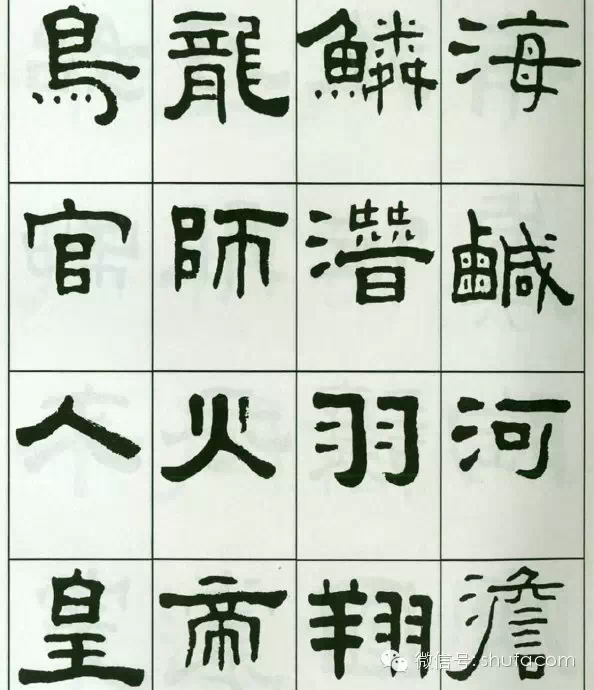 海鹹河澹
鱗潛羽翔
龍師火帝
鳥官人皇
微信号: shufacom